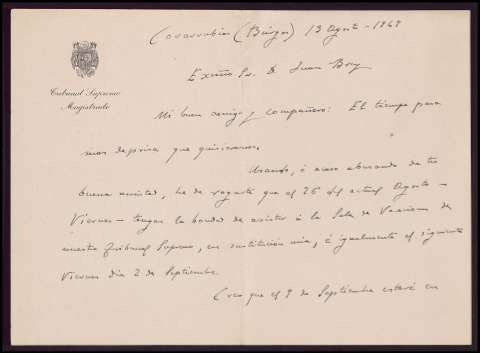 Covarrubias (Burgos) 13 Agosto - 1949
Tribunal Supremo
Magistrado
Excmo Sr. D. Juan
Mi buen amigo y compañero: El tiempo pasa
mas deprisa que quisieramos.
Usando, ó acaso abusando de tu
buena amistad, he de rogarte que el 26 del actual Agosto -
Viernes - tengas la bondad de asistir á la Sala de Vacaciones de
nuestro Tribunal Supremo, en sustitución mia, é igualmente el siguiente
Viernes dia 2 de Septiembre.
Creo que el 9 de Septiembre estaré en